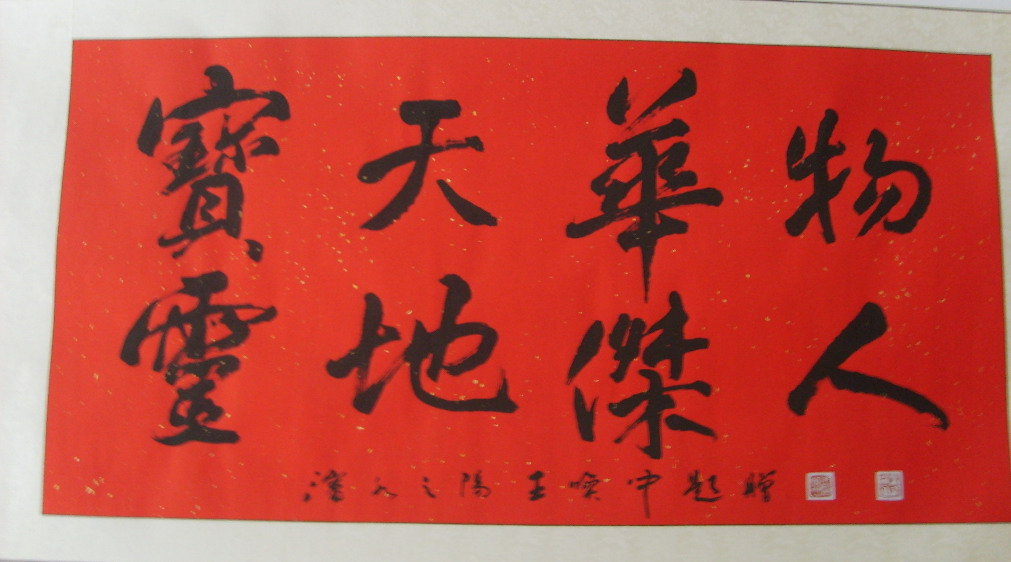 物華天寶
人傑地靈
之陽 王 中題贈